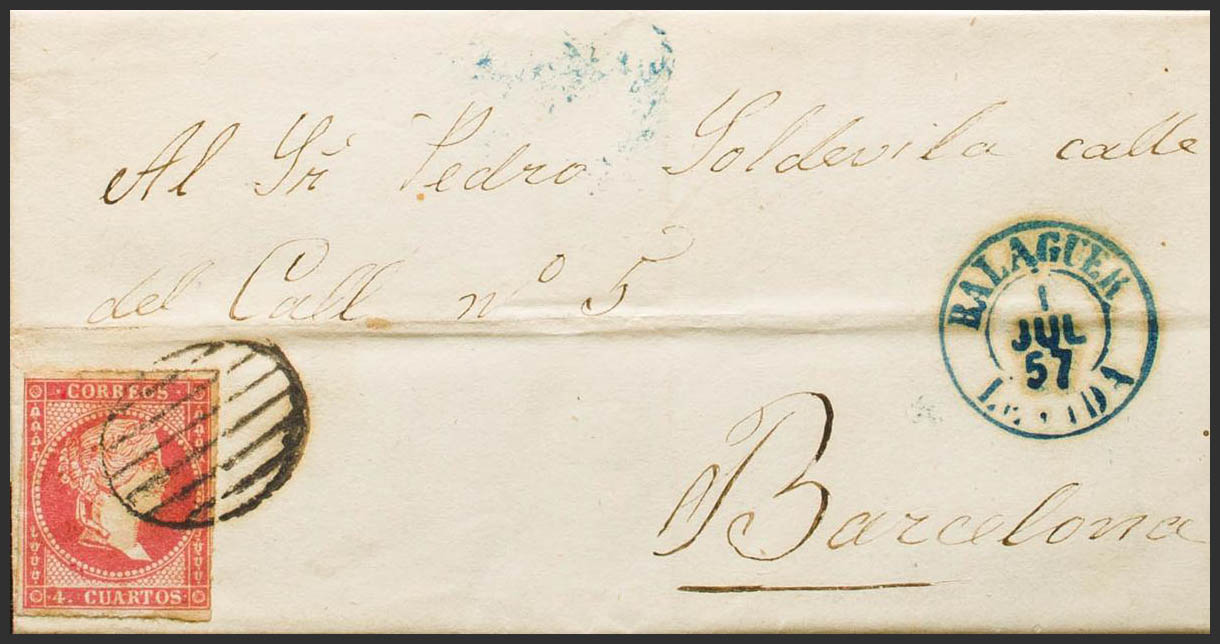 Al Sr. Pedro Soldevila calle
del Call nº 5
BALAGUER
1
JUL
57
CORREOS
4. CUARTOS
Barcelona